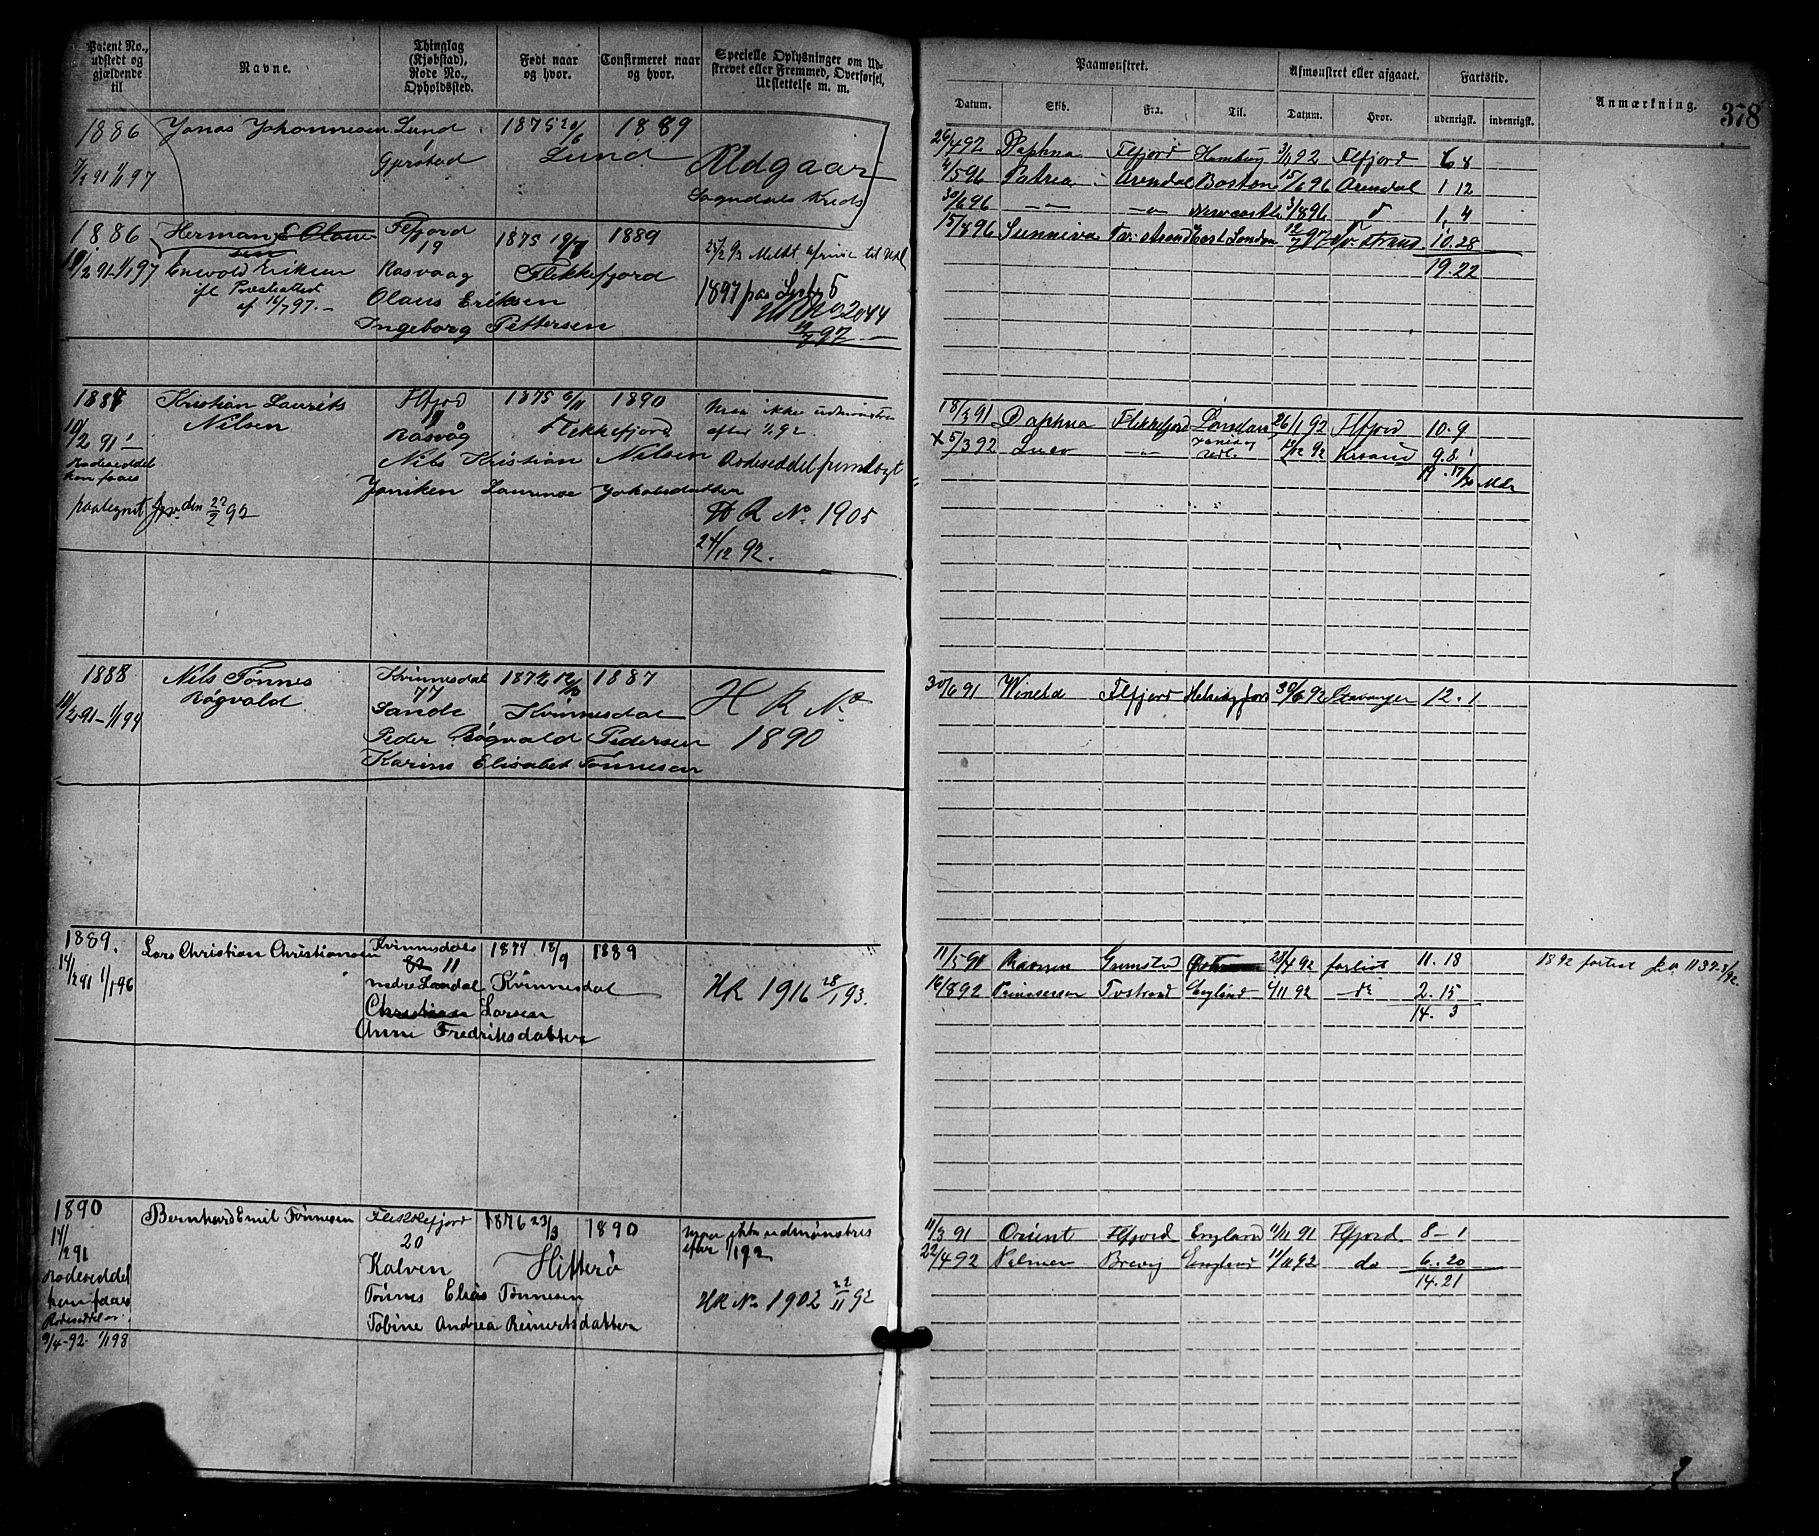 Patent No., udstedt og gjældende til
Navne.
Thinglag (Kjøbstad), Rode No., Opholdssted.
Født naar og hvor.
Confirmeret naar og hvor.
Specielle Oplysninger om Udskrevet eller Fremmed, Overførsel, Udslettelse m. m.
Paamønstret.
Afmønstret eller afgaaet.
Fartstid.
Anmærkning.
378
Datum. Skib. Fra. Til. Datum. Hvor. udenrigsk. indenrigsk.
1886 Jonas Johannesen Lund 1875 20/6 1889
Gjerstad Lund Afgaar
7/2 91 1/1 97
Sogndals Kreds
26/4 92 Daphna Flfjord Hamburg 3/1 92 Flfjord 6 8
4/5 96 Patria Arendal Boston 15/6 96 Arendal 1 12
30/6 96 — — Newcastle 3/8 96 1, 4
15/8 96 Sunniva Tvestrand East London 12/7 97 10.28
19.22
1886 Herman E Olausen Flfjord 1875 19/7 1889
19
10/2 91 1/1 97 Enevold Eriksen Rasvaag Flekkefjord
ifl Præsteattest Olaus Eriksen
af 16/7 97.— Ingeborg Pettersen
1897 paa
2044
12/7 97 —
1887 Kristian Laurits Flfjord 1875 6/11 1890 maa ikke udmønstres
Nilsen efter 1/1 92
10/2 91 Rasvåg Flekkefjord
Rodeseddel Nils Kristian Nilsen Rodeseddel fremlagt
kan faaes Janiken Laurense Jakobsdatter
paategnet den 27/2 92 HR No 1905
24/12 92.
18/3 91 Daphna Flekkefjord 26/1 92 Flfjord 10.9
5/3 92 — 9.8
1888 Nils Tønnes Kvinnesdal 1872 12/10 1887
Røgvald 77
10/2 91–1/1 94 Sande Kvinnesdal HR No
Peder Røgvald Pedersen 1890
Karine Elisabet Tønnesen
30/6 91 Flfjord Helsingfors 30/6 92 Stavanger 12.1
1889. Lars Christian Christiansen Kvinnesdals 1874 18/9 1889
82 11
14/2 91 1/1 96 nedre Landal Kvinnesdal HR 1916 28/1 93.
Christian Larsen
Anne Fredriksdatter
11/5 91 Grimstad 28/4 92 forlist 11.18
1892 forlist
16/8 92 Tvstrand England 4/11 92 — do 2.15
14.3
1890 Bernhard Emil Tønnesen Flekkefjord 1876 23/3 1890 maa ikke udmønstres
efter 1/1 92
14/2 91 20
Rodeseddel Kalven Hitterø
kan faaes Tønnes Elias Tønnesen HR No 1902 22/11 92
Rodeseddel Tobine Andrea Reinertsdatter
9/4-92 1/1 98
11/3 91 Orient Flfjord England 11/11 91 Flfjord 8-1
22/4 92 Brevig England 11/11 92 do 6.20
14.21